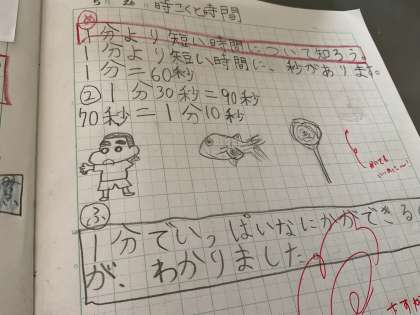 時こくと時間
め
1分より短い時間について知ろう。
1分より短い時間に、秒があります。
1分=60秒
② 1分30秒=90秒
70秒=1分10秒
ふ
1分でいっぱいなにかができる
が、わかりました